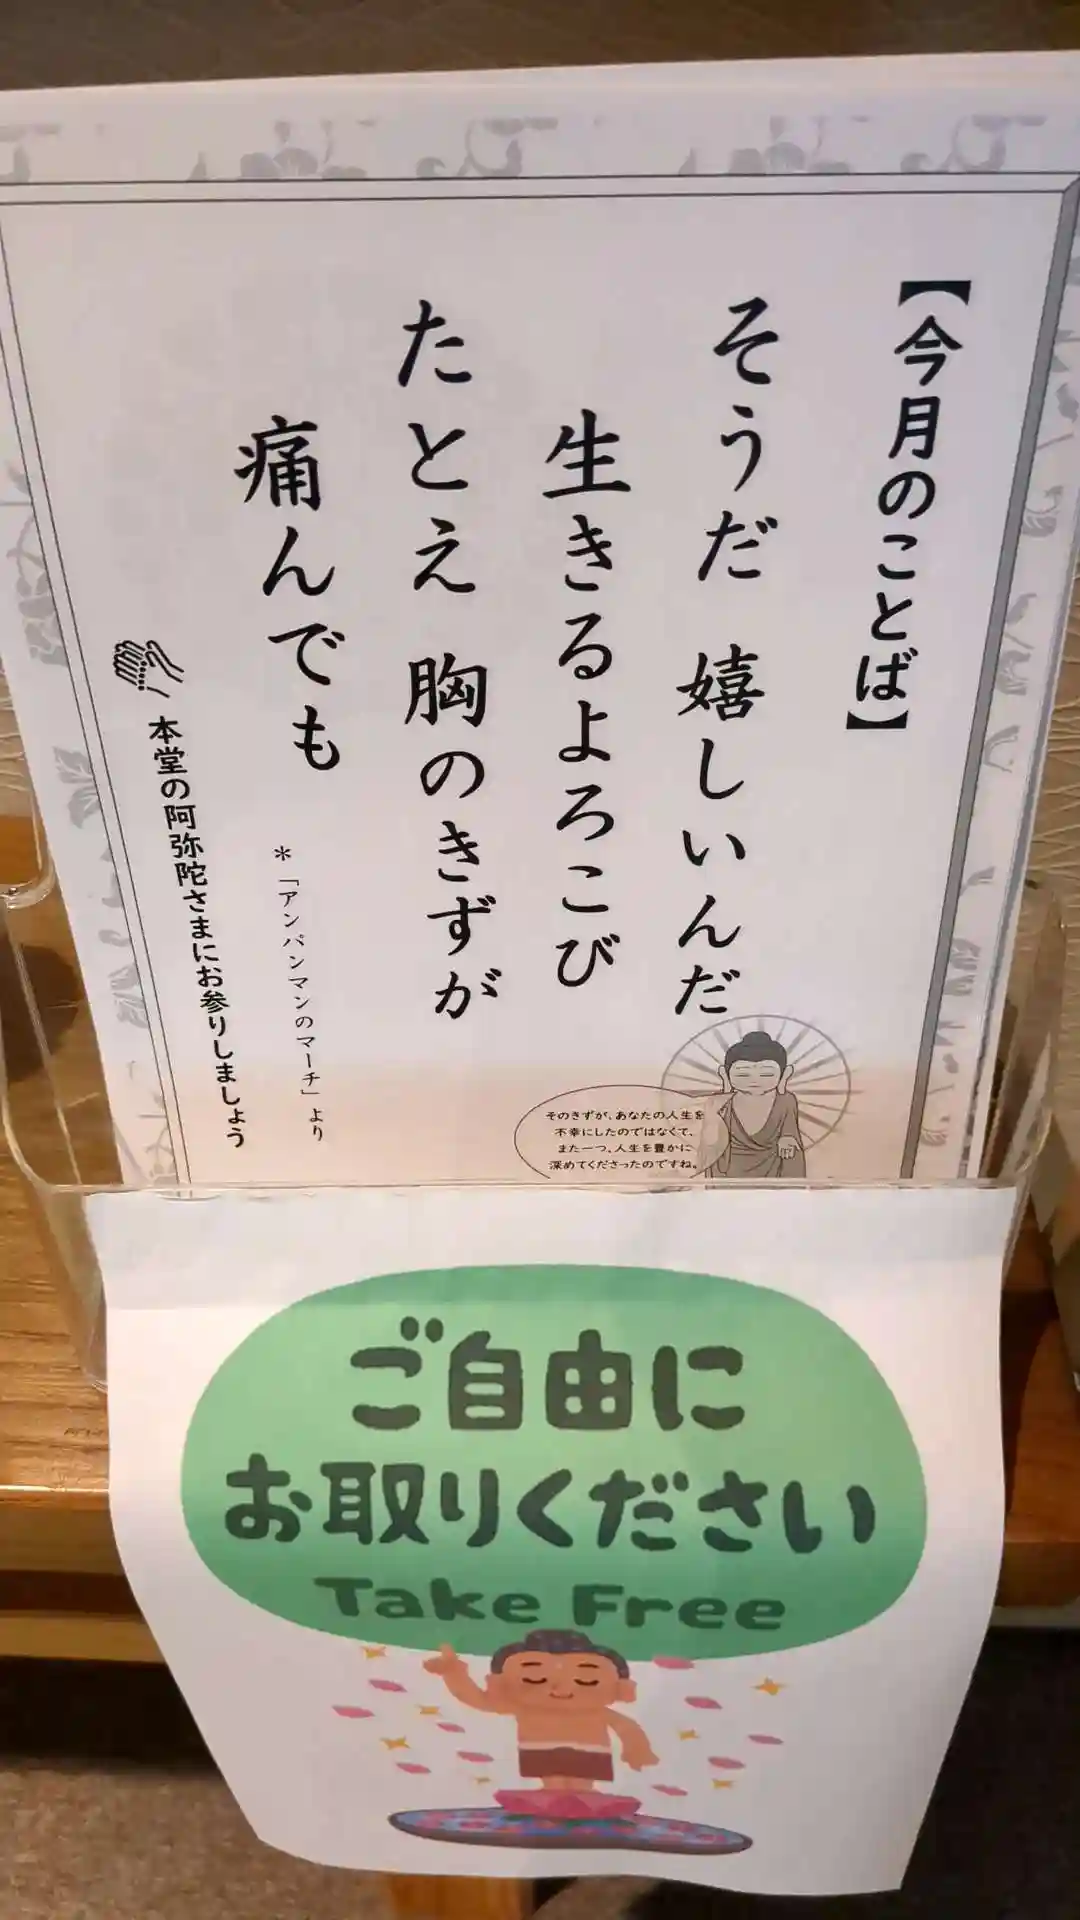 【今月のことば】
そうだ 嬉しいんだ
生きるよろこび
たとえ 胸のきずが
痛んでも
＊「アンパンマンのマーチ」より
本堂の阿弥陀さまにお参りしましょう
そのきずが、あなたの人生を
不幸にしたのではなくて、
また一つ、人生を豊かに
深めてくださったのですね。
ご自由に
お取りください
Take Free